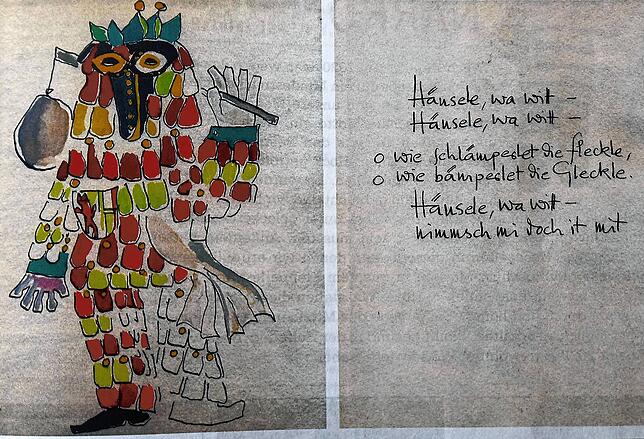 Hänsele, wa witt –
Hänsele, wa witt –
o wie schlämperlet die Fleckle,
o wie bämperlet die Gleckle.
Hänsele, wa witt –
nimmsch mi doch it mit